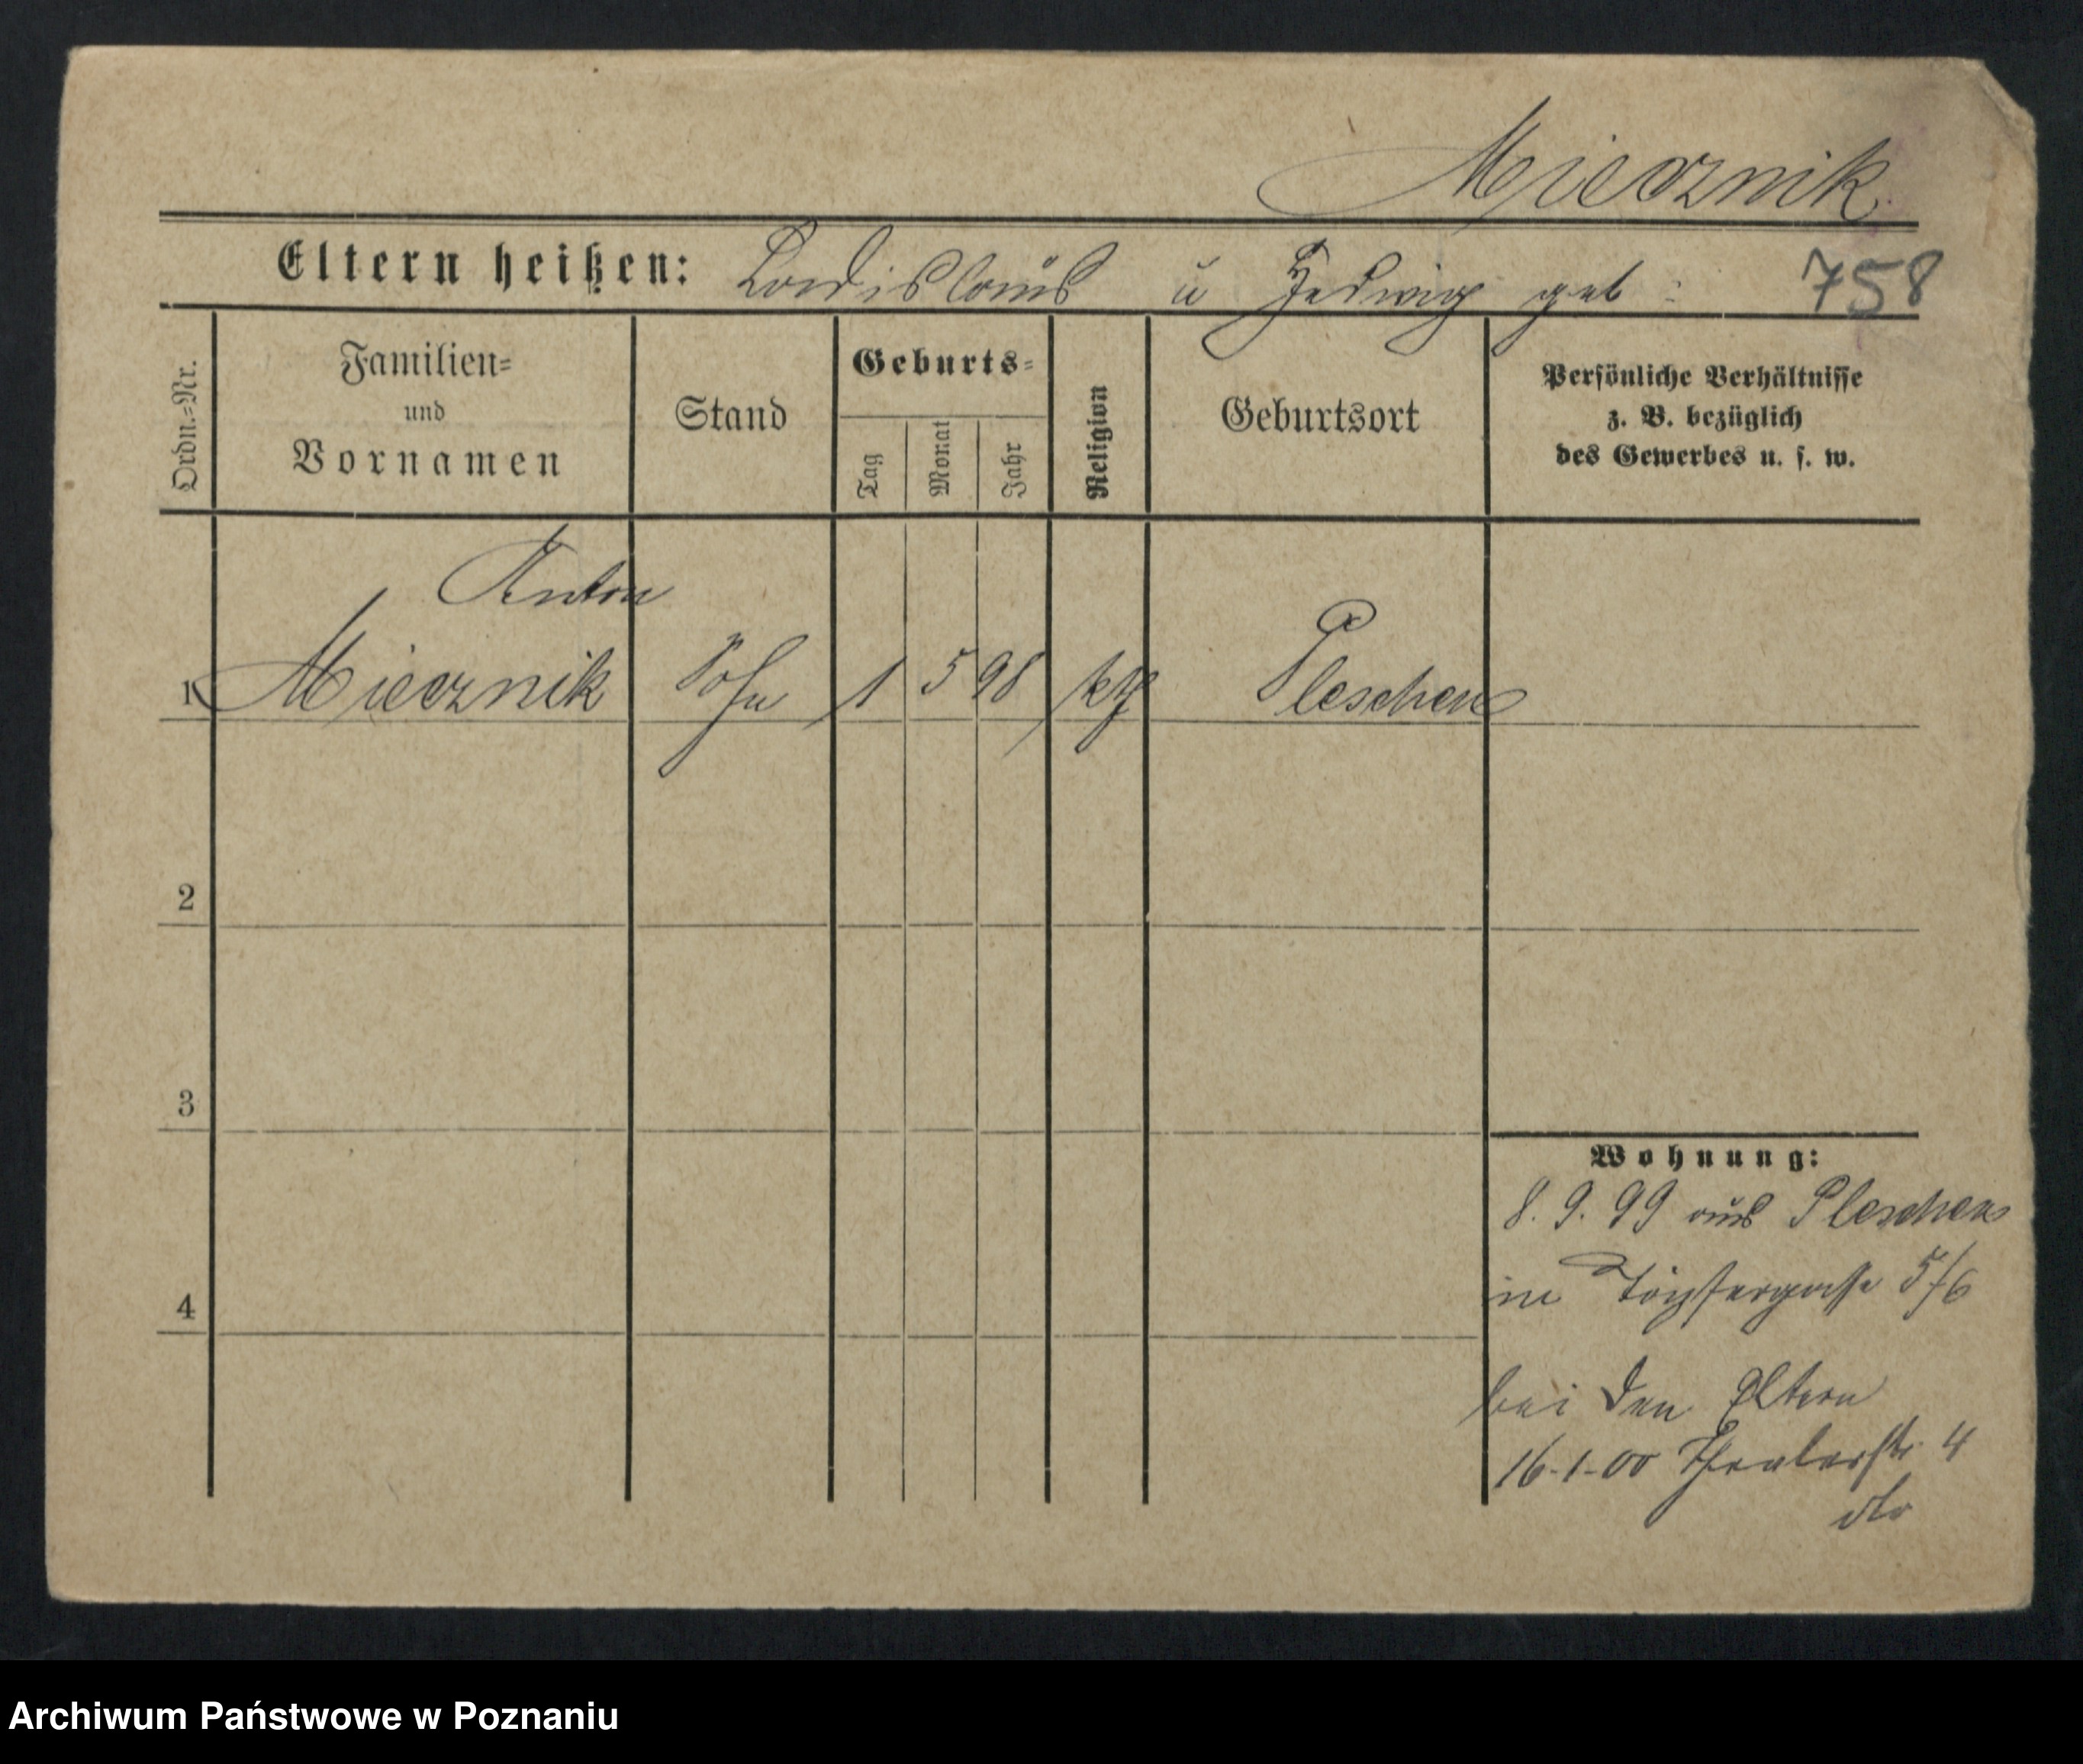 Miecznik
Eltern heißen: Ladislaus u Hedwig geb: 758
Ordn.=Nr.
Familien=
und
Vornamen
Stand
Geburts=
Tag
Monat
Jahr
Religion
Geburtsort
Persönliche Verhältnisse
z. B. bezüglich
des Gewerbes u. s. w.
Anton
1 Miecznik Sohn 1 5 98 kth Pleschen
2
3
4
Wohnung:
8. 9. 99 aus Pleschen
in Töpfergasse 5/6
bei den Eltern
16-1-00 4
dto
Archiwum Państwowe w Poznaniu